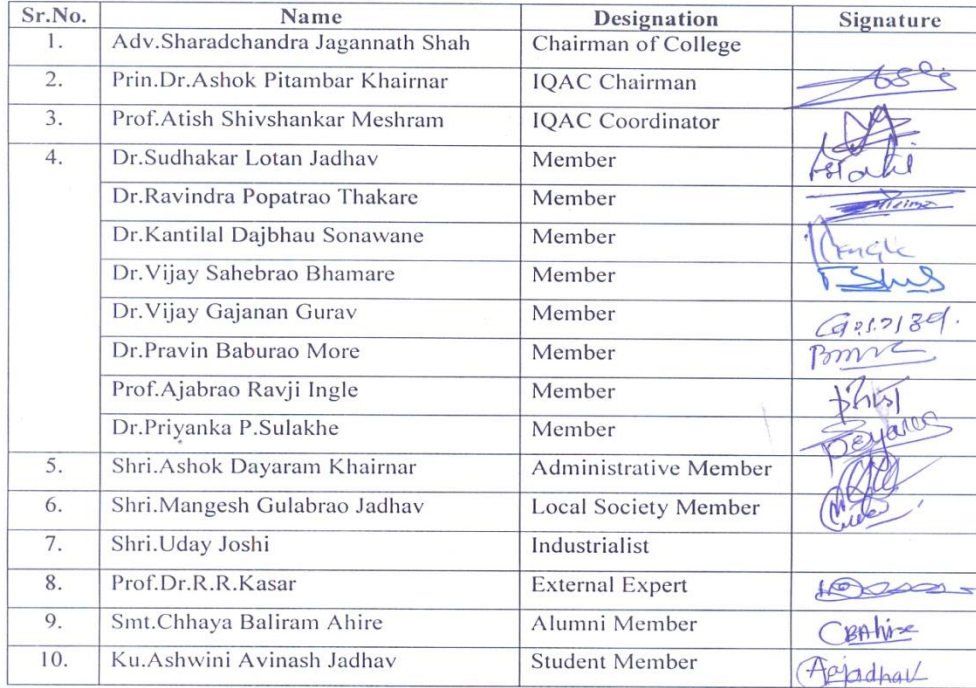 Sr.No. Name Designation Signature
1. Adv.Sharadchandra Jagannath Shah Chairman of College
2. Prin.Dr.Ashok Pitambar Khairnar IQAC Chairman
3. Prof.Atish Shivshankar Meshram IQAC Coordinator
4. Dr.Sudhakar Lotan Jadhav Member
Dr.Ravindra Popatrao Thakare Member
Dr.Kantilal Dajbhau Sonawane Member
Dr.Vijay Sahebrao Bhamare Member
Dr.Vijay Gajanan Gurav Member
Dr.Pravin Baburao More Member
Prof.Ajabrao Ravji Ingle Member
Dr.Priyanka P.Sulakhe Member
5. Shri.Ashok Dayaram Khairnar Administrative Member
6. Shri.Mangesh Gulabrao Jadhav Local Society Member
7. Shri.Uday Joshi Industrialist
8. Prof.Dr.R.R.Kasar External Expert
9. Smt.Chhaya Baliram Ahire Alumni Member CBAhire
10. Ku.Ashwini Avinash Jadhav Student Member Aajadhav